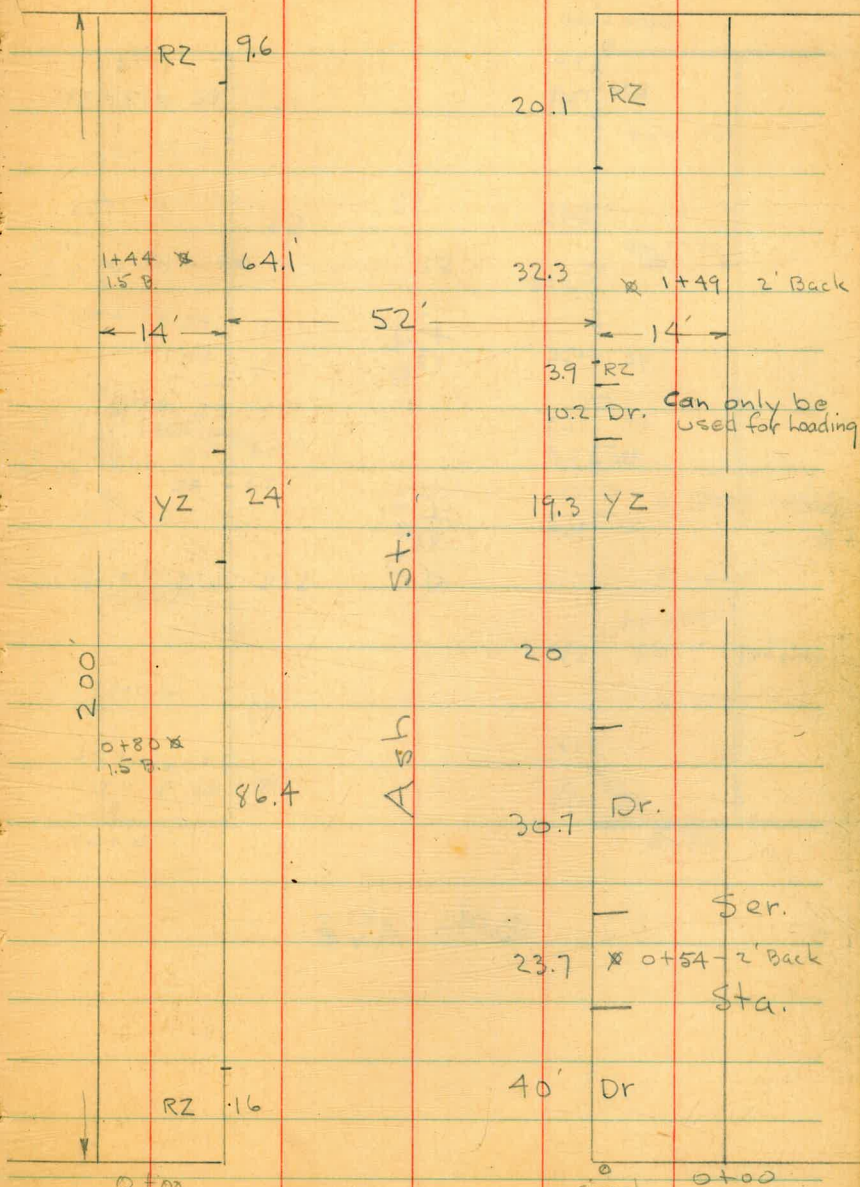 RZ 9.6
20.1 RZ
1+44 64.1'
1.5 B.
32.3 1+49 2' Back
14' 52' 14'
3.9 RZ
10.2 Dr. Can only be
used for Loading
YZ 24' 19.3 YZ
Ash St.
200'
20
0+80
1.5 B.
86.4
30.7 Dr.
Ser.
23.7 0+54 - 2' Back
Sta.
40' Dr
RZ 16
0+00 0+00